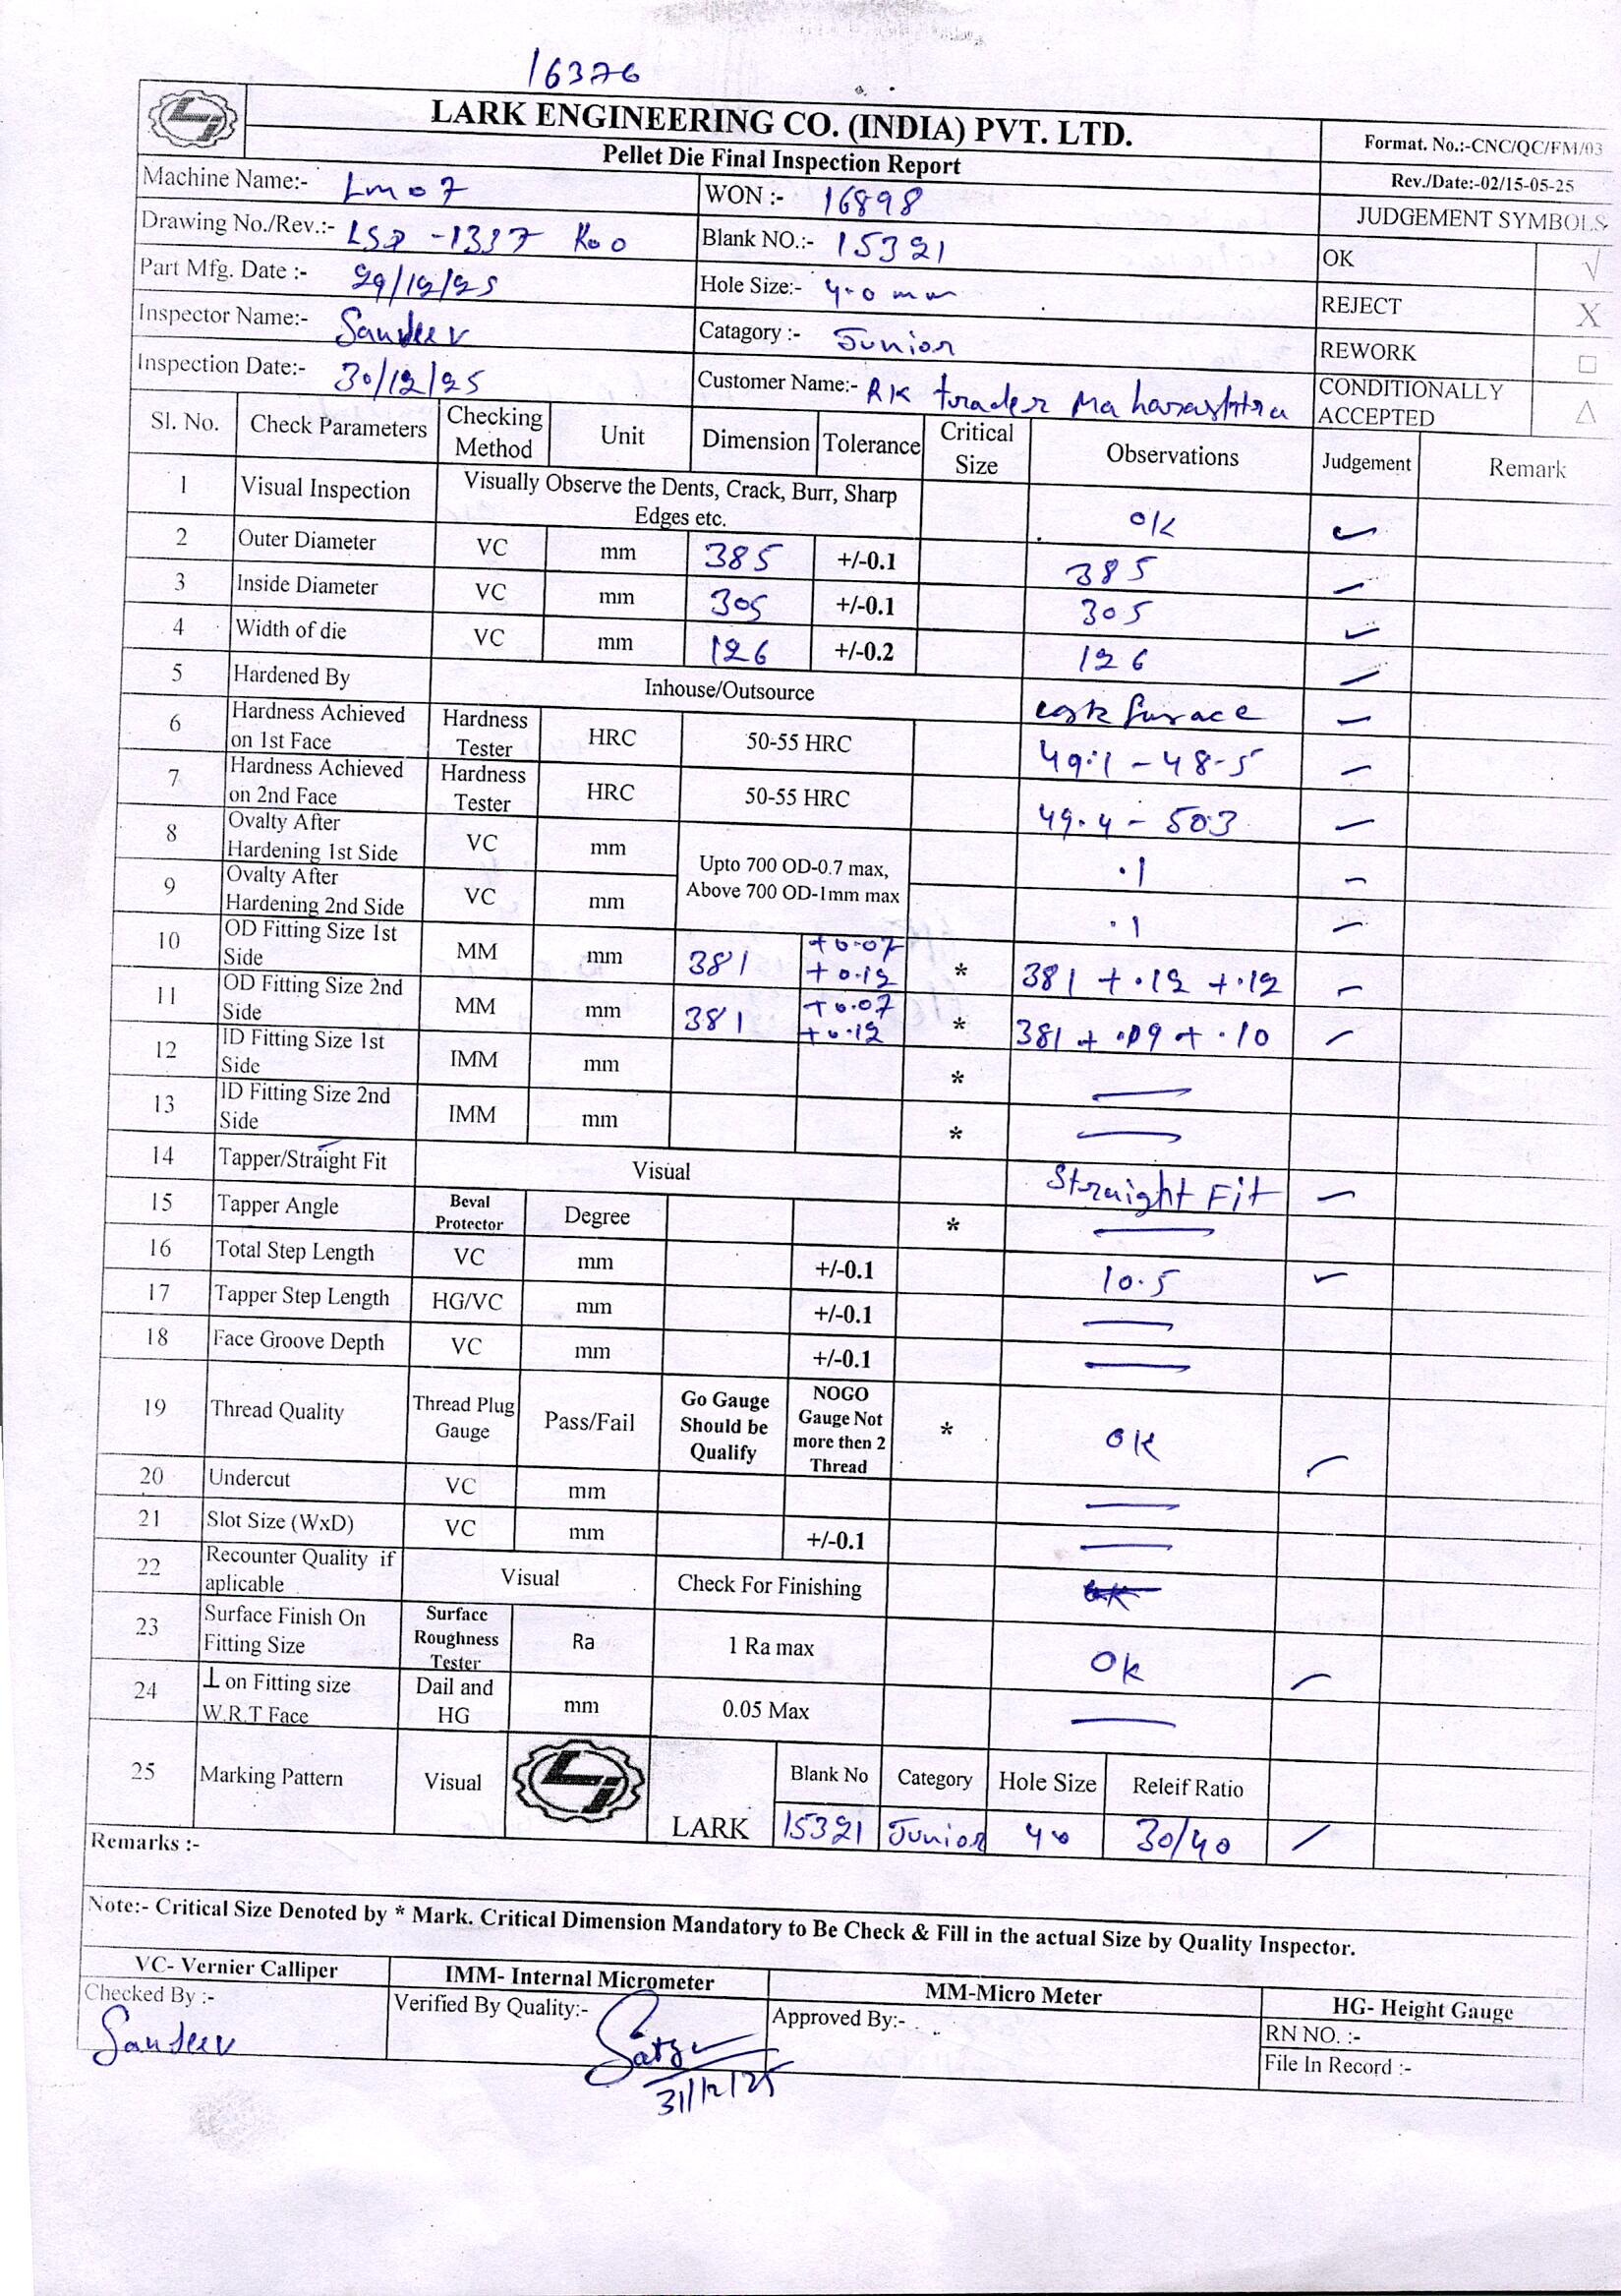 16376
LARK ENGINEERING CO. (INDIA) PVT. LTD.
Pellet Die Final Inspection Report
Format. No.:-CNC/QC/FM/03
Rev./Date:-02/15-05-25
Machine Name:- Lm07 WON :- 16898 JUDGEMENT SYMBOLS
Drawing No./Rev.:- LSD -1337 R00 Blank NO.:- 15321 OK √
Part Mfg. Date :- 29/12/25 Hole Size:- 4.0 mm REJECT X
Inspector Name:- Sandeev Catagory :- Junior REWORK □
Inspection Date:- 30/12/25 Customer Name:- RK trader Maharashtra CONDITIONALLY ACCEPTED △
Sl. No. Check Parameters Checking Method Unit Dimension Tolerance Critical Size Observations Judgement Remark
1 Visual Inspection Visually Observe the Dents, Crack, Burr, Sharp Edges etc. OK ✓
2 Outer Diameter VC mm 385 +/-0.1 385 ✓
3 Inside Diameter VC mm 305 +/-0.1 305 ✓
4 Width of die VC mm 126 +/-0.2 126 ✓
5 Hardened By Inhouse/Outsource ✓
6 Hardness Achieved on 1st Face Hardness Tester HRC 50-55 HRC 49.1 - 48.5 ✓
7 Hardness Achieved on 2nd Face Hardness Tester HRC 50-55 HRC 49.4 - 50.3 ✓
8 Ovalty After Hardening 1st Side VC mm Upto 700 OD-0.7 max, Above 700 OD-1mm max .1 ✓
9 Ovalty After Hardening 2nd Side VC mm .1 ✓
10 OD Fitting Size 1st Side MM mm 381 +0.07 +0.12 * 381 +.12 +.12 ✓
11 OD Fitting Size 2nd Side MM mm 381 +0.07 +0.12 * 381 + .09 + .10 ✓
12 ID Fitting Size 1st Side IMM mm * —
13 ID Fitting Size 2nd Side IMM mm * —
14 Tapper/Straight Fit Visual Straight Fit ✓
15 Tapper Angle Beval Protector Degree * —
16 Total Step Length VC mm +/-0.1 10.5 ✓
17 Tapper Step Length HG/VC mm +/-0.1 —
18 Face Groove Depth VC mm +/-0.1 —
19 Thread Quality Thread Plug Gauge Pass/Fail Go Gauge Should be Qualify NOGO Gauge Not more then 2 Thread * OK ✓
20 Undercut VC mm —
21 Slot Size (WxD) VC mm +/-0.1 —
22 Recounter Quality if aplicable Visual Check For Finishing
23 Surface Finish On Fitting Size Surface Roughness Tester Ra 1 Ra max Ok ✓
24 ⊥ on Fitting size W.R.T Face Dail and HG mm 0.05 Max —
25 Marking Pattern Visual LARK Blank No Category Hole Size Releif Ratio
15321 Junior 40 30/40 ✓
Remarks :-
Note:- Critical Size Denoted by * Mark. Critical Dimension Mandatory to Be Check & Fill in the actual Size by Quality Inspector.
VC- Vernier Calliper IMM- Internal Micrometer MM-Micro Meter HG- Height Gauge
Checked By :- Verified By Quality:- Approved By:- RN NO. :-
Sandeev 31/12/25 File In Record :-